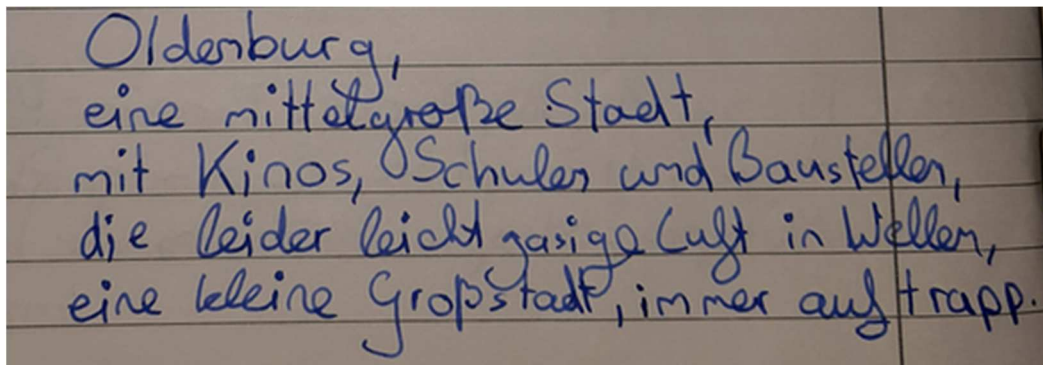 Oldenburg,
eine mittelgroße Stadt,
mit Kinos, Schulen und Baustellen,
die leider leicht gasige Luft in Wellen,
eine kleine Großstadt, immer auf trapp.